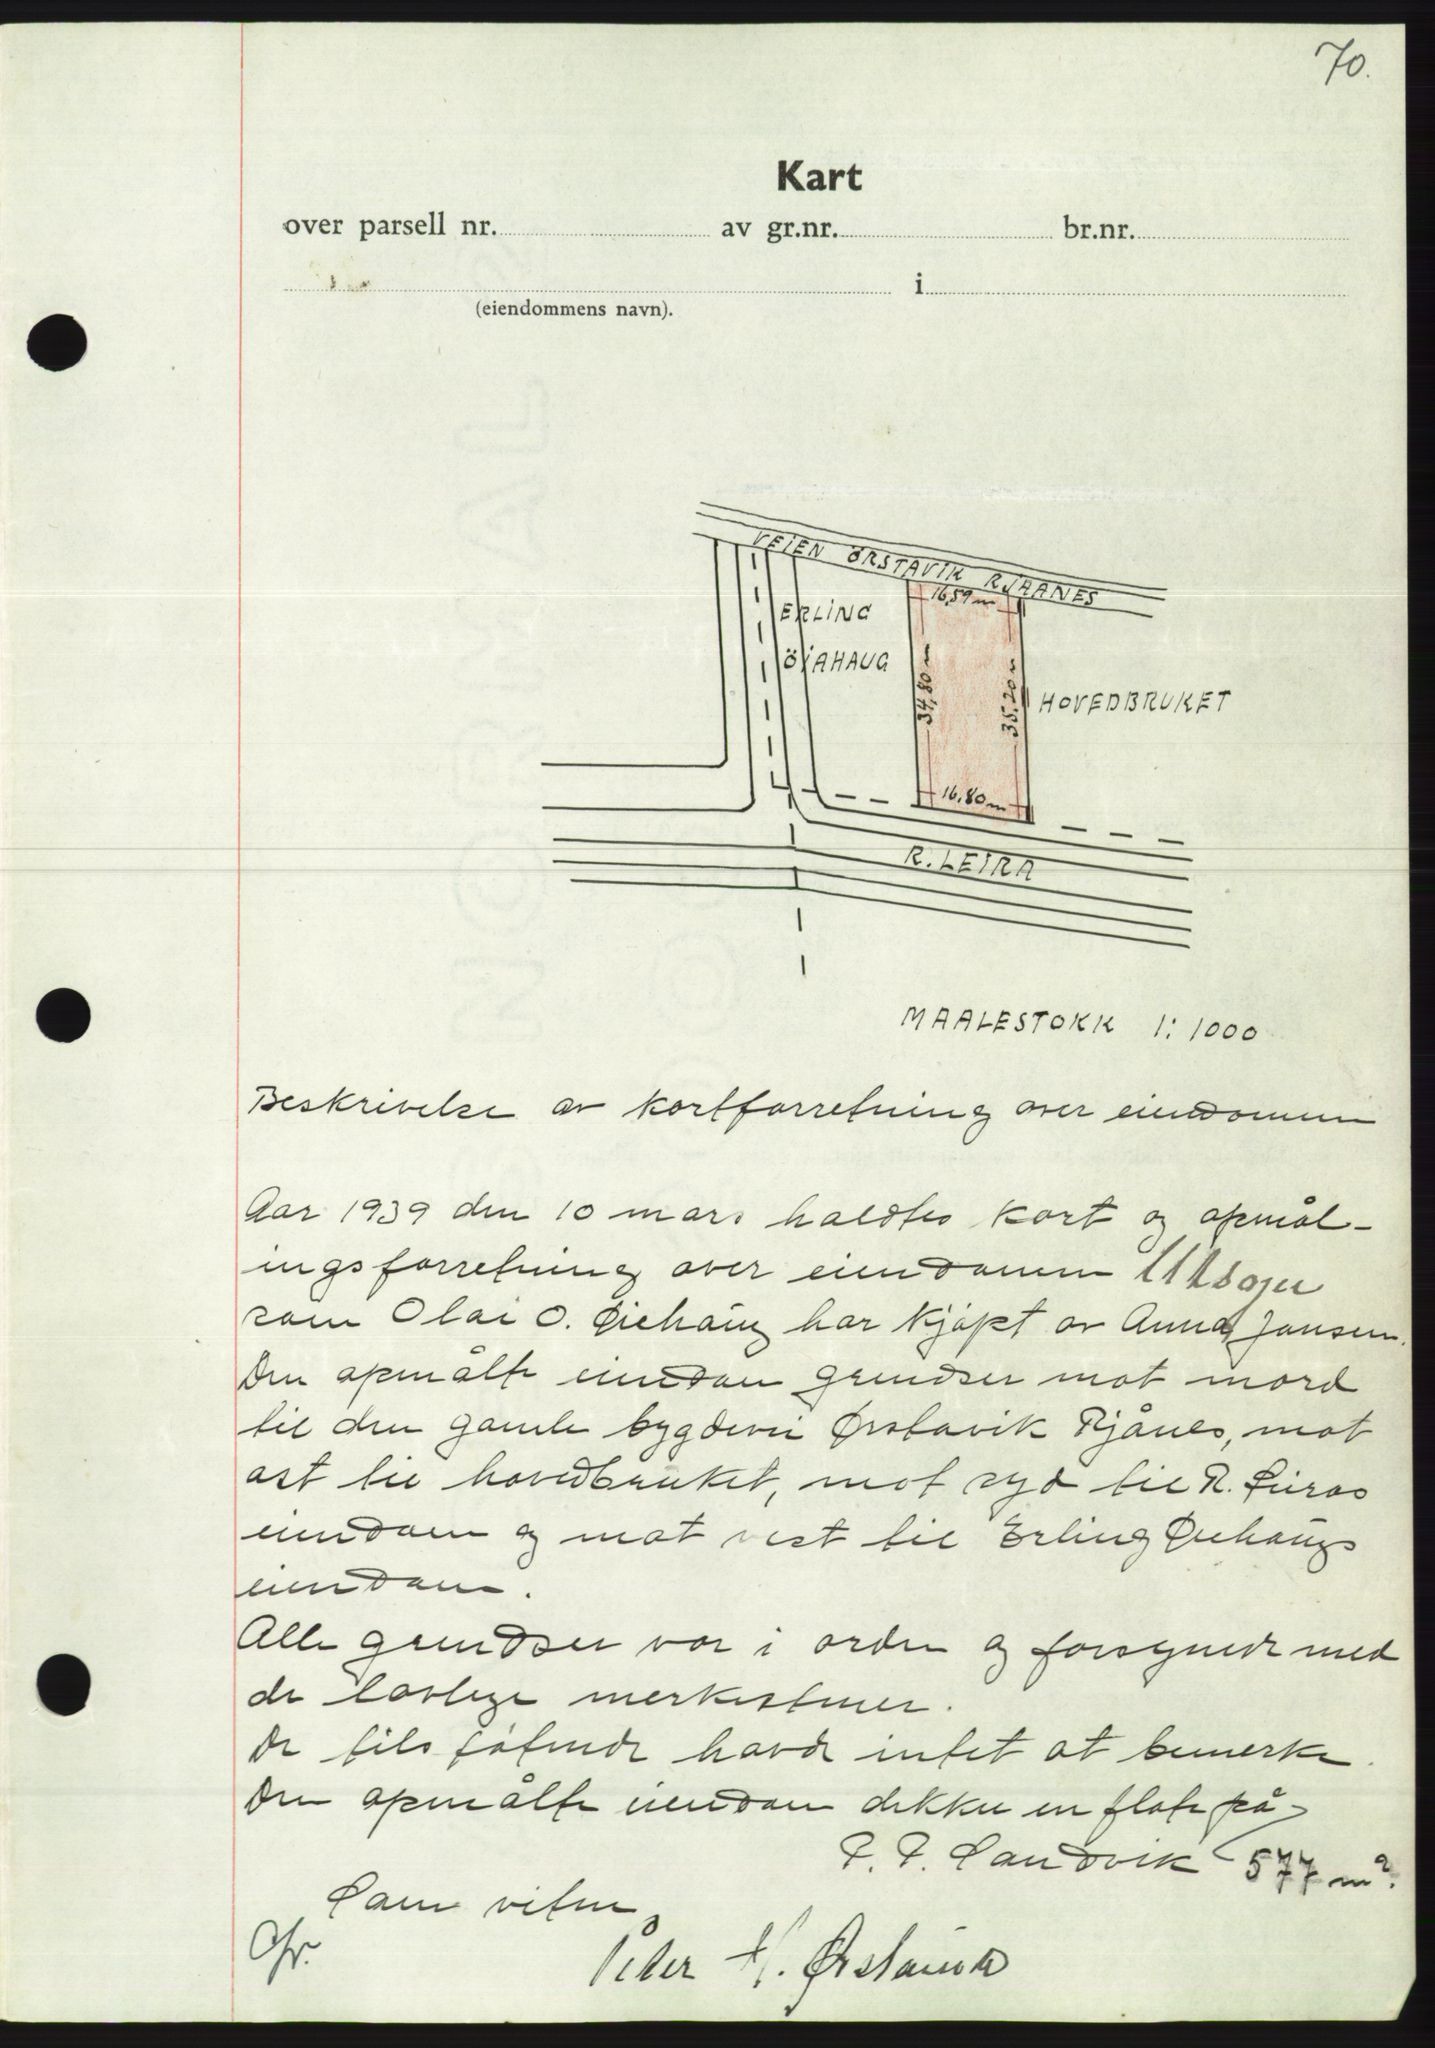 70.
Kart
over parsell nr. av gr.nr. br.nr.
i
(eiendommens navn).
VEIEN ÖRSTAVIK RJAANES
16,59 m
ERLING
ÖIAHAUG
34,80 m
35,20 m
HOVEDBRUKET
16,80 m
R. LEIRA
MAALESTOKK 1:1000
Beskrivelse av kartforretning over eiendommen
Aar 1939 den 10 mars holdtes kart og opmål-
ingsforretning over eiendommen
som Olai O. Øiehaug har kjøpt av Anna Jansen.
Den opmålte eiendom grendser mot nord
til den gamle bygdevei Ørstavik Rjånes, mot
ost til hovedbruket, mot syd til R.
eiendom og mot vest til Erling Øiehaugs
eiendom.
Alle grendser var i orden og forsynede med
de lovlige merkestener.
De tilstötende havde intet at bemerke.
Den opmålte eiendom dekker en flate på
P. P. Sandvik 577 m².
Som vitne
Peter H. Ørstavik